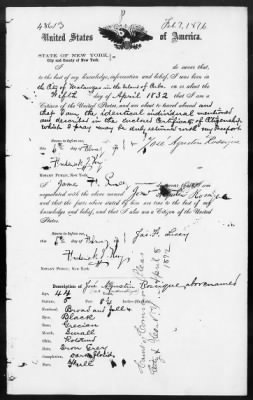 48613 Feb 7, 1876
United States of America.
STATE OF NEW YORK,
City and County of New York
I do swear that,
to the best of my knowledge, information and belief, I was born in
the City of Matanzas in the Island of Cuba on or about the
Fifth day of April 1832 that I am a
Citizen of the United States, and am about to travel abroad and
that I am the identical individual mentioned
and described in the enclosed Certificate of Citizenship
which I pray may be returned with my Passport
Sworn to before me,
this day of
José Agustin
NOTARY PUBLIC, NEW YORK.
I James H. Lucy
acquainted with the above named José
and that the facts above stated by are true to the best of my
knowledge and belief, and that I also am a Citizen of the
United States.
Sworn to before me,
this day of
Jas. H. Lucy
NOTARY PUBLIC, NEW YORK.
Description of José Agustin above named
Age, 44
Stature, 5 8½
Forehead, Broad and full
Eyes, Black
Nose, Grecian
Mouth, Small
Chin, Rotund
Hair, Iron Grey
Complexion, Dark
Face, Full